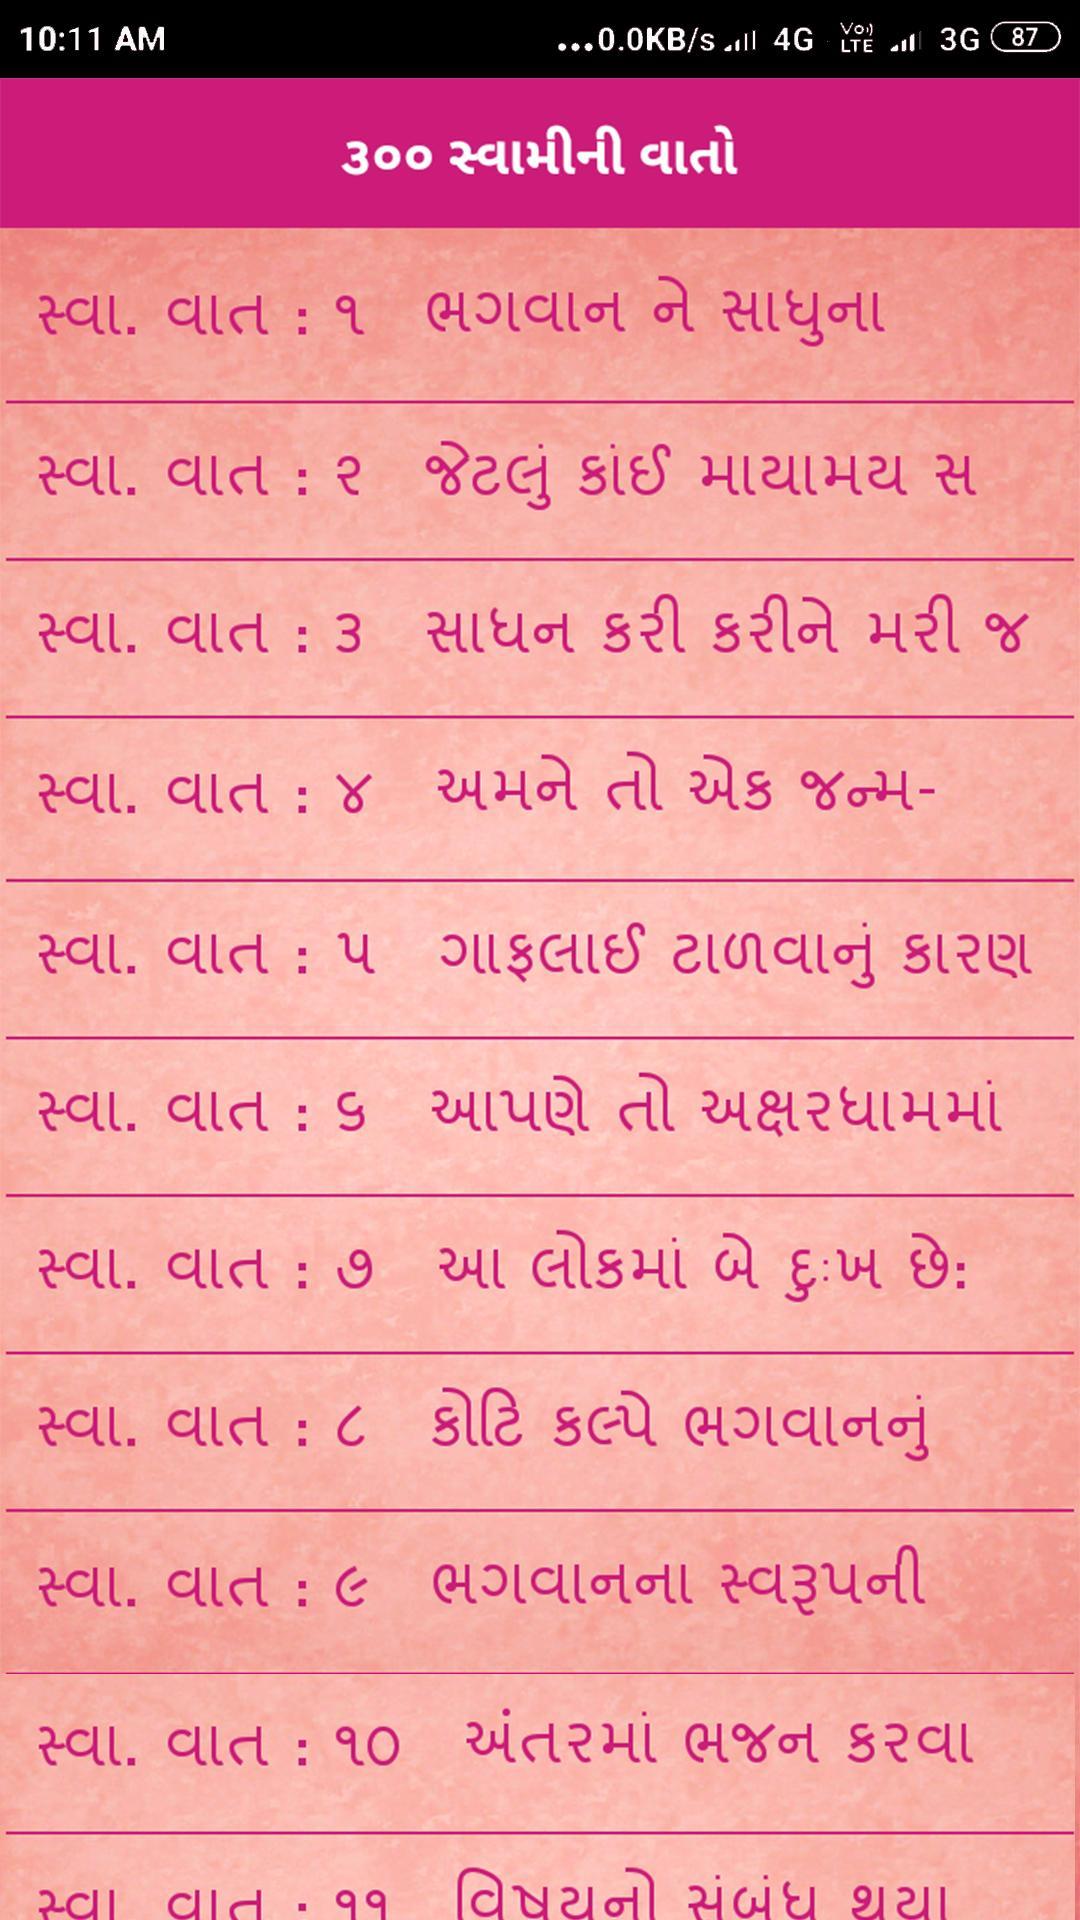 10:11 AM ...0.0KB/s 4G Vo) LTE 3G 87
૩૦૦ સ્વામીની વાતો
સ્વા. વાત : ૧ ભગવાન ને સાધુના
સ્વા. વાત : ૨ જેટલું કાંઈ માયામય સ
સ્વા. વાત : ૩ સાધન કરી કરીને મરી જ
સ્વા. વાત : ૪ અમને તો એક જન્મ-
સ્વા. વાત : ૫ ગાફલાઈ ટાળવાનું કારણ
સ્વા. વાત : ૬ આપણે તો અક્ષરધામમાં
સ્વા. વાત : ૭ આ લોકમાં બે દુઃખ છે:
સ્વા. વાત : ૮ કોટિ કલ્પે ભગવાનનું
સ્વા. વાત : ૯ ભગવાનના સ્વરૂપની
સ્વા. વાત : ૧૦ અંતરમાં ભજન કરવા
સ્વા. વાત : ૧૧ વિષયનો સંબંધ થયા